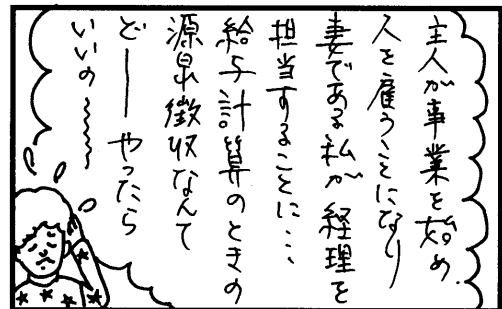 主人が事業を始め
人を雇うことになり
妻である私が経理を
担当することに…
給与計算のときの
源泉徴収なんて
どーーやったら
いいの～～～